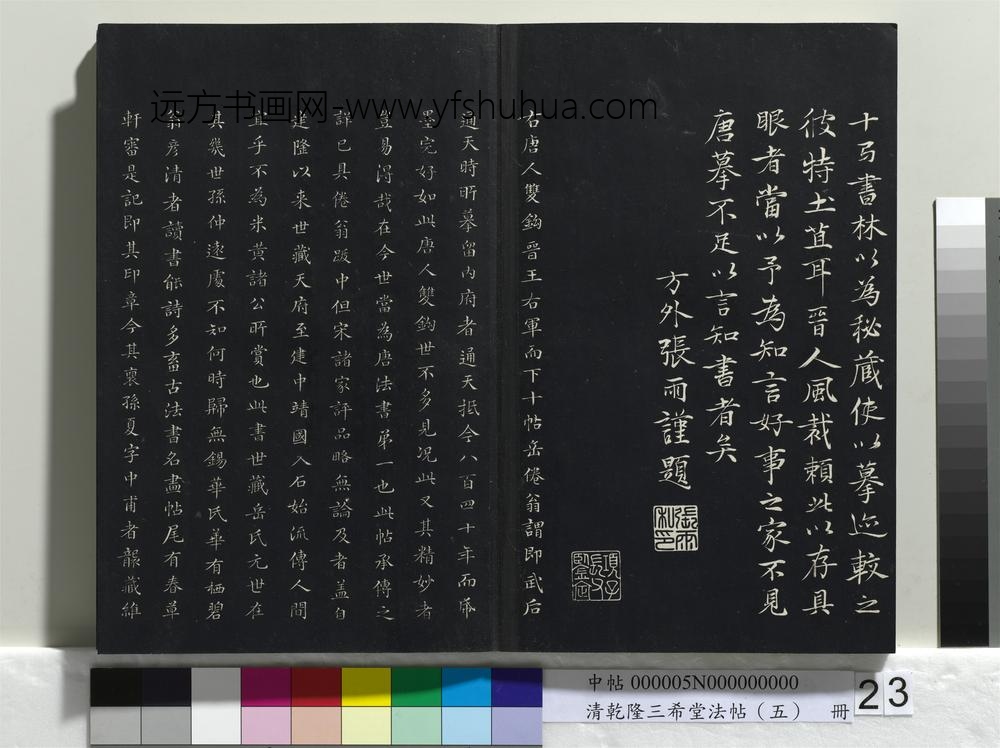 十書林以為秘藏使以摹迹較之
彼特土苴耳晉人風裁賴此以存具
眼者當以予為知言好事之家不見
唐摹不足以言知書者矣
方外張雨謹題
張雨私印
右唐人雙鈎晉王右軍而下十帖岳倦翁謂即武后
通天時所摹留內府者通天抵今八百四十年而帋
墨完好如此唐人雙鈎世不多見况此又其精妙者
豈易得哉在今世當為唐法書弟一也此帖承傳之
詳已具倦翁跋中但宋諸家評品略無論及者蓋自
建隆以來世藏天府至建中靖國入石始流傳人間
宜乎不為米黃諸公所賞也此書世藏岳氏元世在
其幾世孫仲遠處不知何時歸無錫華氏華有栖碧
翁彥清者讀書能詩多畜古法書名畫帖尾有春草
軒審是記即其印章今其裔孫夏字中甫者韞藏維
远方书画网-www.yfshuhua.com
中帖 000005N000000000
清乾隆三希堂法帖（五） 冊
23